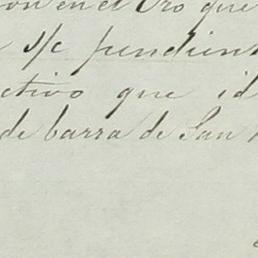 en el Oro que
s/c pendient
ctivo que id
de barra de San